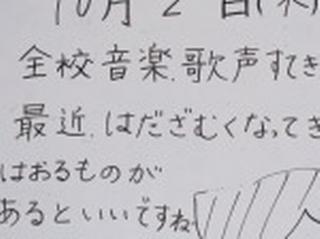 10月2日(木)
全校音楽、歌声すてき
最近、はだざむくなってき
はおるものが
あるといいですね